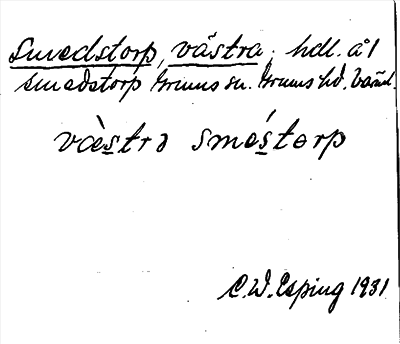 Smedstorp, västra; hdl. å 1
Smedstorp Grums sn. Grums hd. Värml.
vàstrə sméstorp
C.W. Esping 1931